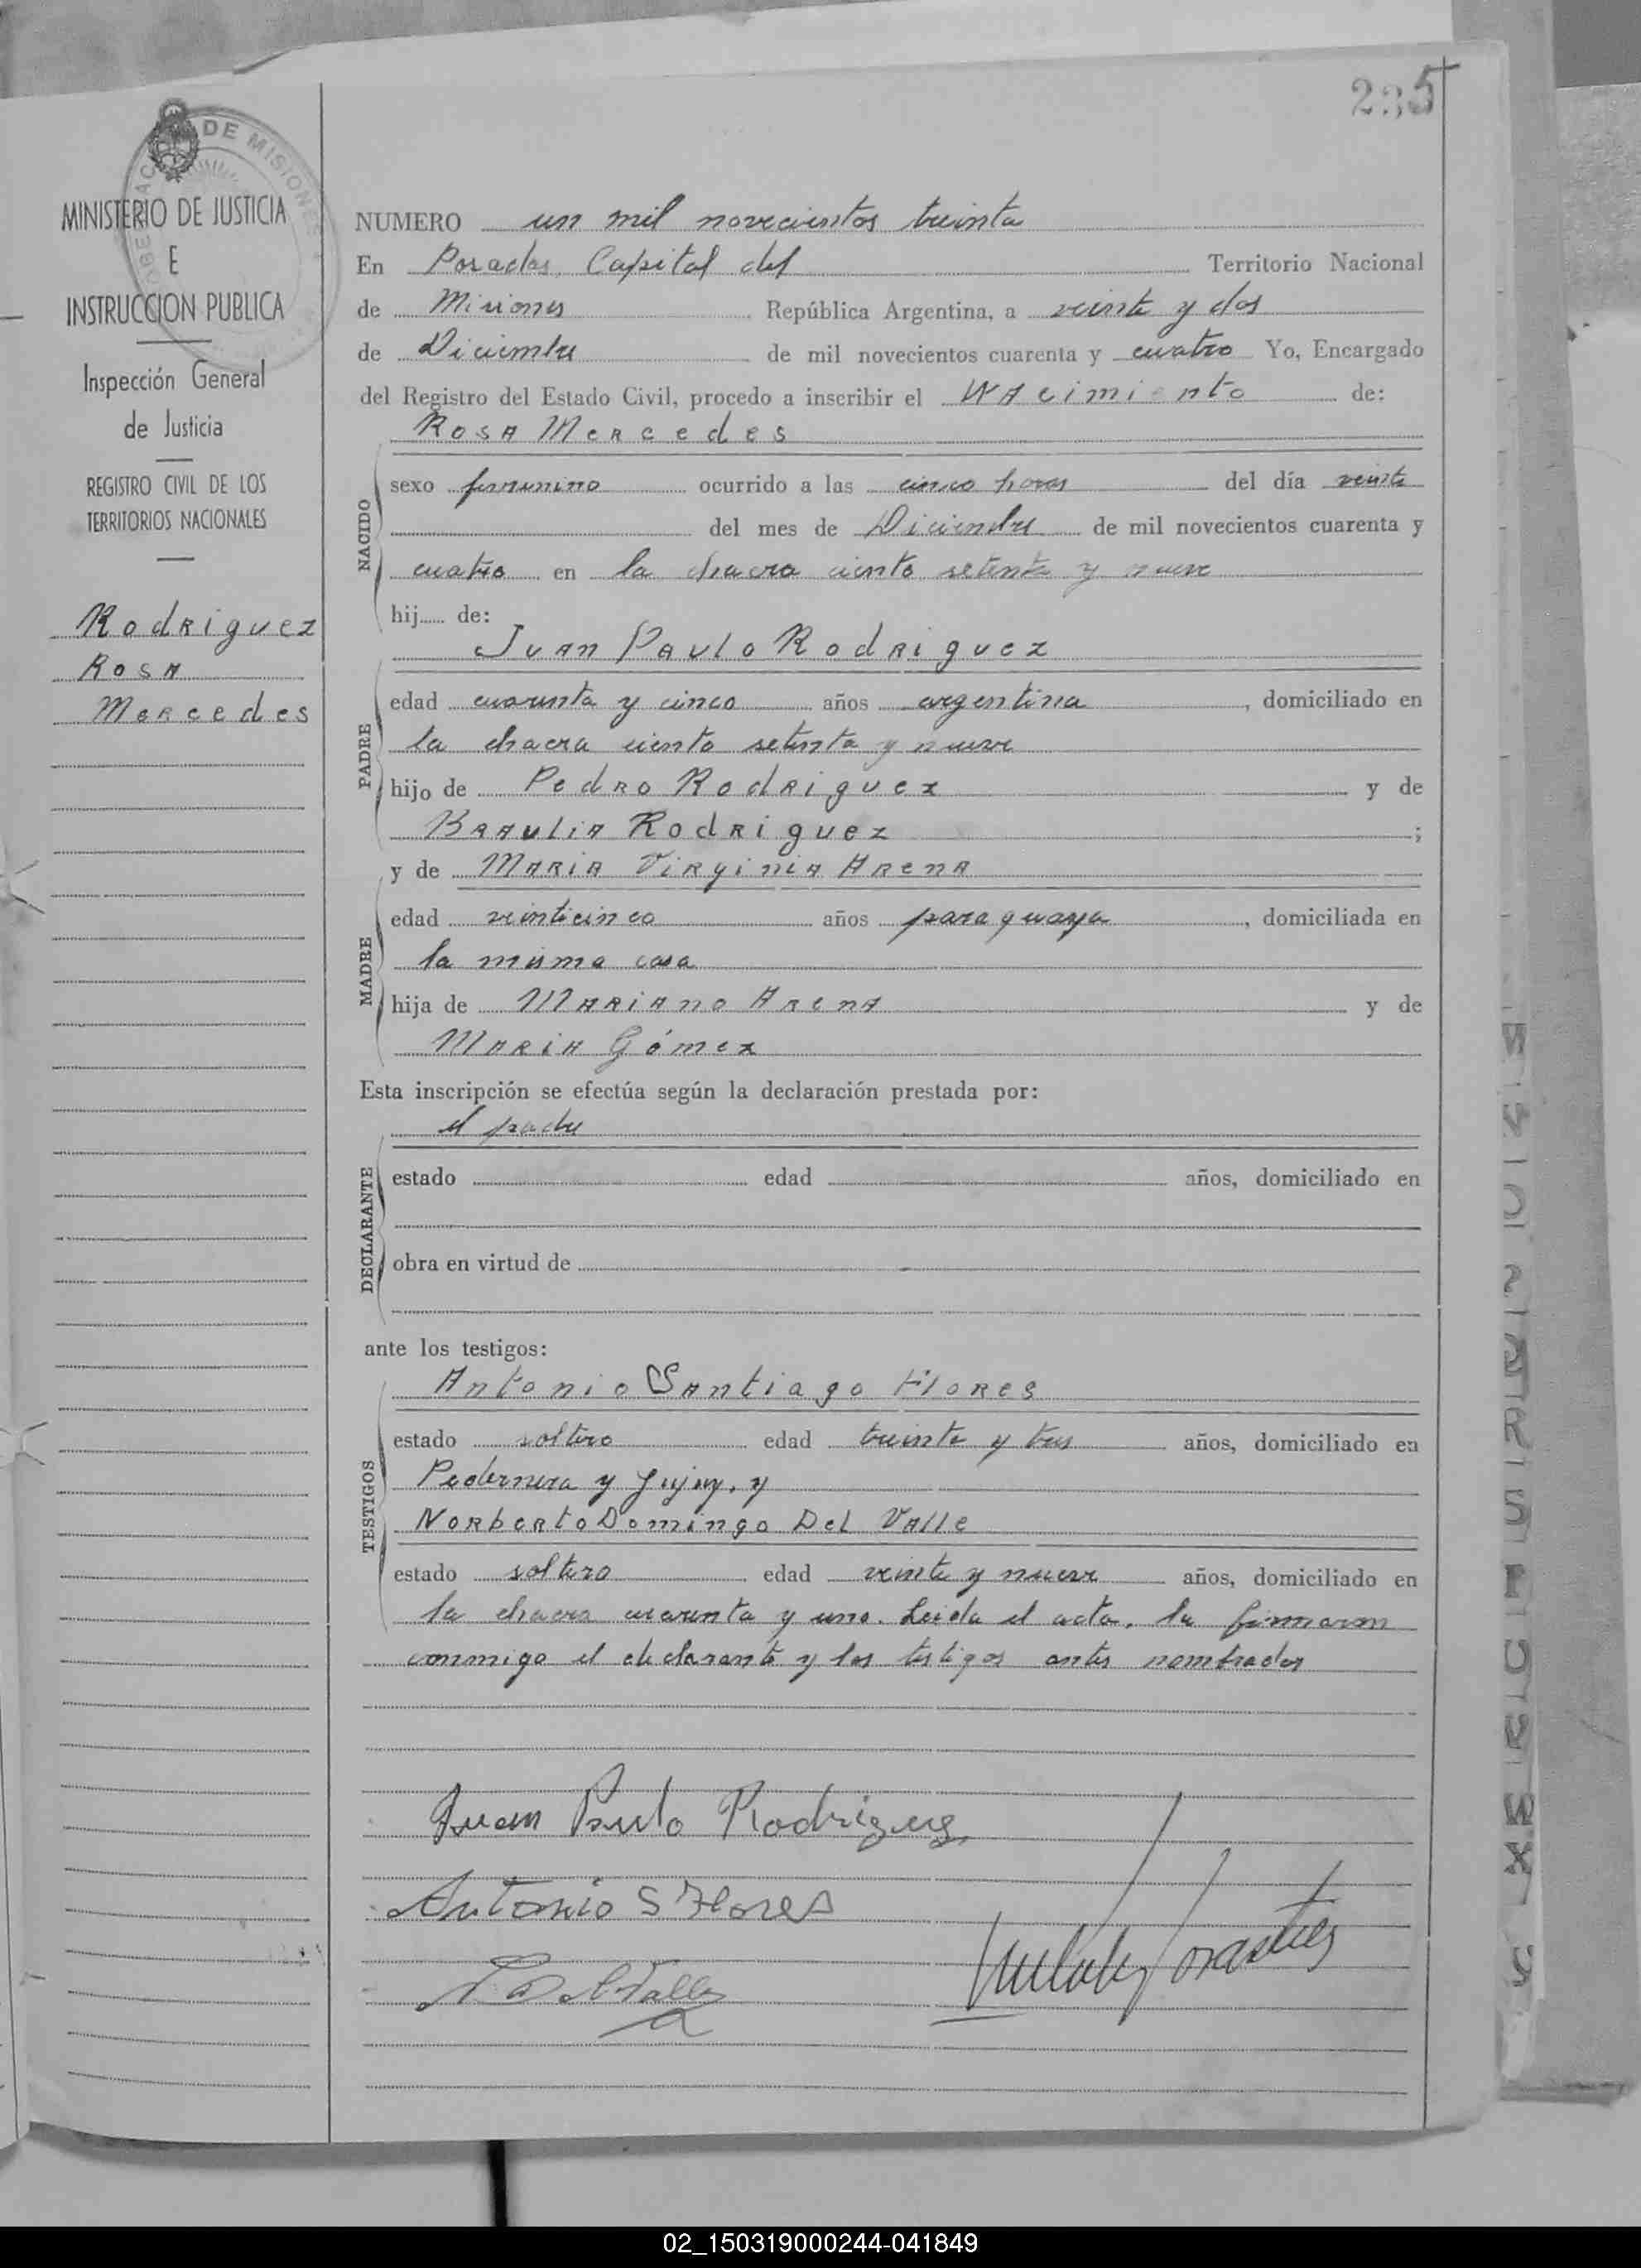 235
DE MISIONES
MINISTERIO DE JUSTICIA
E
INSTRUCCION PUBLICA
Inspección General
de Justicia
REGISTRO CIVIL DE LOS
TERRITORIOS NACIONALES
Rodriguez
Rosa
Mercedes
NUMERO un mil novecientos treinta
En Posadas, Capital del Territorio Nacional
de Misiones República Argentina, a veinte y dos
de Diciembre de mil novecientos cuarenta y cuatro Yo, Encargado
del Registro del Estado Civil, procedo a inscribir el Nacimiento de:
Rosa Mercedes
NACIDO
sexo femenino ocurrido a las cinco horas del día veinte
del mes de Diciembre de mil novecientos cuarenta y
cuatro en la chacra ciento setenta y nueve
hij...... de:
Juan Paulo Rodriguez
PADRE
edad cuarenta y cinco años argentina, domiciliado en
la chacra ciento setenta y nueve
hijo de Pedro Rodriguez y de
Braulia Rodriguez ;
y de Maria Virginia Arena
MADRE
edad veinticinco años paraguaya, domiciliada en
la misma casa
hija de Mariano Arena y de
Maria Gómez
Esta inscripción se efectúa según la declaración prestada por:
el padre
DECLARANTE
estado edad años, domiciliado en
obra en virtud de
ante los testigos:
Antonio Santiago Flores
TESTIGOS
estado soltero edad treinta y tres años, domiciliado en
Pedernera y Jujuy, y
Norberto Domingo Del Valle
estado soltero edad veinte y nueve años, domiciliado en
la chacra cuarenta y uno. Leida el acta, la firmaron
conmigo el declarante y los testigos antes nombrados
Juan Paulo Rodriguez
Antonio S Flores
N D del Valle
02_150319000244-041849